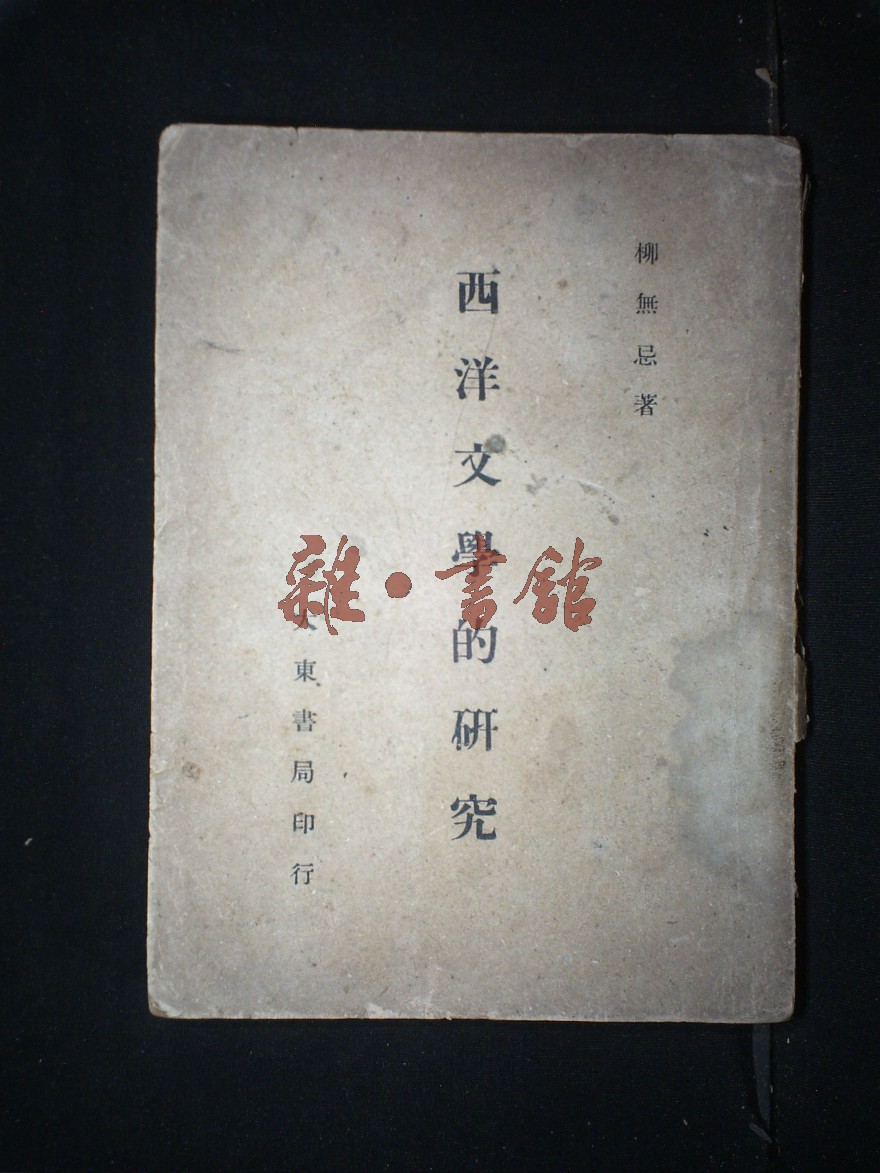 柳無忌著
西洋文學的研究
大東書局印行
雜·書館